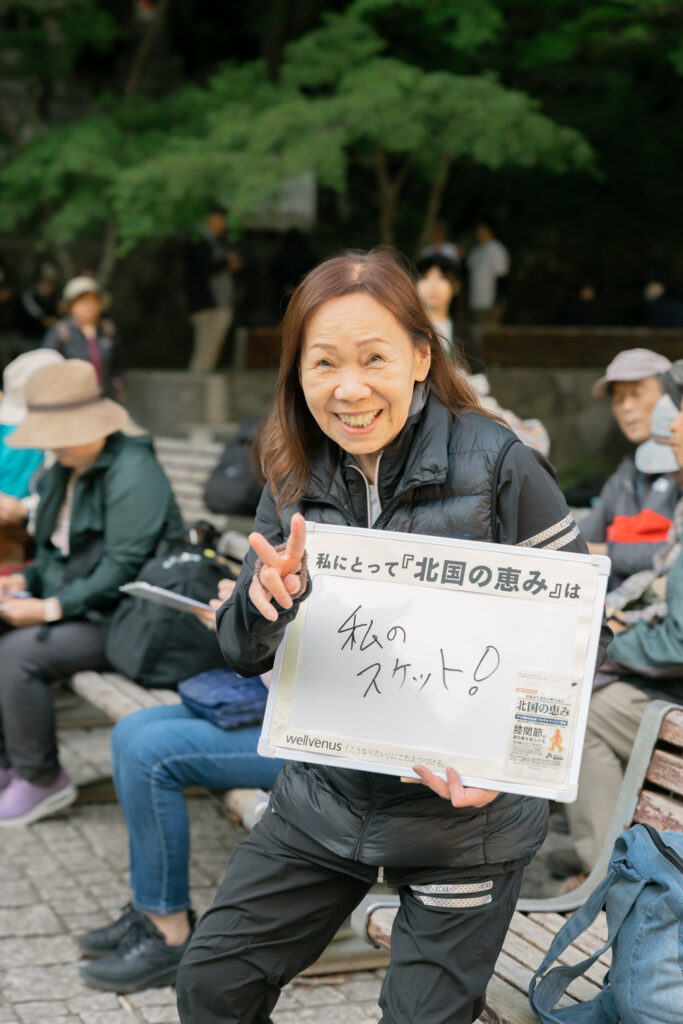 私にとって『北国の恵み』は
私の
スケット!
北国の恵み
膝関節の
wellvenus 「こうなりたい」にこたえつづける。